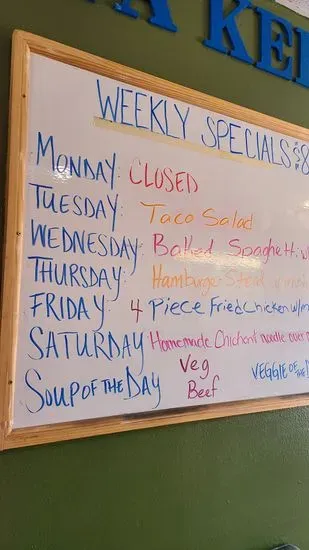 A KE
WEEKLY SPECIALS $8
MONDAY: CLOSED
TUESDAY: Taco Salad
WEDNESDAY: Baked Spaghetti w/
THURSDAY: Hamburger Steak
FRIDAY: 4 Piece Fried Chicken w/m
SATURDAY Homemade Chicken noodle over m
SOUP OF THE DAY Veg Beef
VEGGIE OF THE D